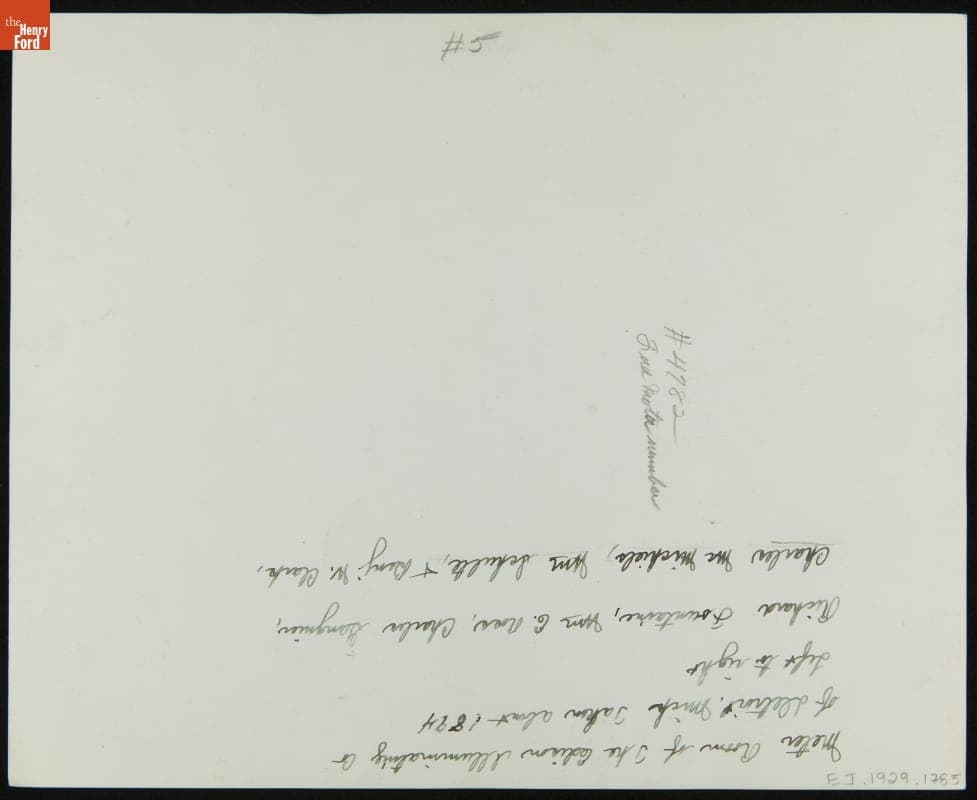 the Henry Ford
#5
#4782
Ford Motor number
Meter Room of The Edison Illuminating Co
of Detroit. Mich Taken about 1894
Left to right
Richard Fountaine, Wm C. Ross, Charles
Charles Mc Michiels, Wm Schultz, + Benj W. Clark,
E.I.1929.1785